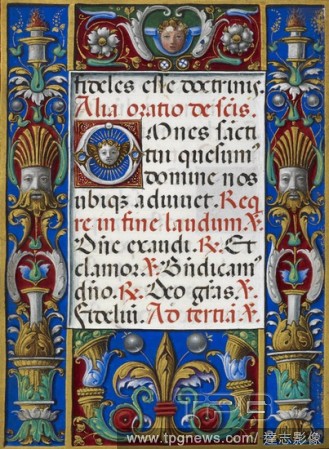 fideles esse doctrinis.
Alia oratio de scīs.
Omnes sācti
tui quesum⁹
domine nos
ubiqȝ adiuvet. Req
re in fine laudum. ℣.
Dn̄e exaudi. ℟. Et
clamor. ℣. Bn̄dicam⁹
dn̄o. ℟. Deo grās. ℣.
Fideliū. Ad tertiā. ℣.
TPG
www.tpgnews.com/ 達志影像